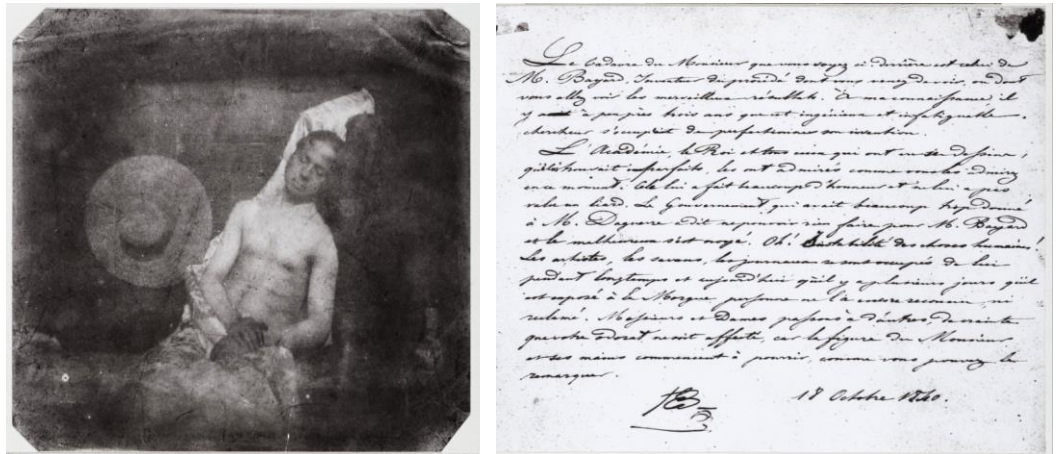 Le cadavre du Monsieur que vous voyez ci derrière est celui de
M. Bayard, Inventeur du procédé dont vous venez de voir, ou dont
vous allez voir les merveilleux résultats. À ma connaissance, il
y a à peu près trois ans que cet ingénieux et infatigable
chercheur s'occupait de perfectionner son invention.
L'Académie, le Roi et tous ceux qui ont vu ses dessins,
qu'il trouvait imparfaits, les ont admirés comme vous les admirez
en ce moment. Cela lui a fait beaucoup d'honneur et ne lui a pas
valu un liard. Le Gouvernement, qui avait beaucoup trop donné
à M. Daguerre a dit ne pouvoir rien faire pour M. Bayard
et le malheureux s'est noyé. Oh! Instabilité des choses humaines!
Les artistes, les savans, les journaux se sont occupés de lui
pendant longtemps et aujourd'hui qu'il y a plusieurs jours qu'il
est exposé à la Morgue, personne ne l'a encore reconnu, ni
reclamé. Messieurs et Dames, passons à d'autres, de crainte
que votre odorat ne soit affecté, car la figure du Monsieur
et ses mains commencent à pourrir, comme vous pouvez le
remarquer.
18 Octobre 1840.